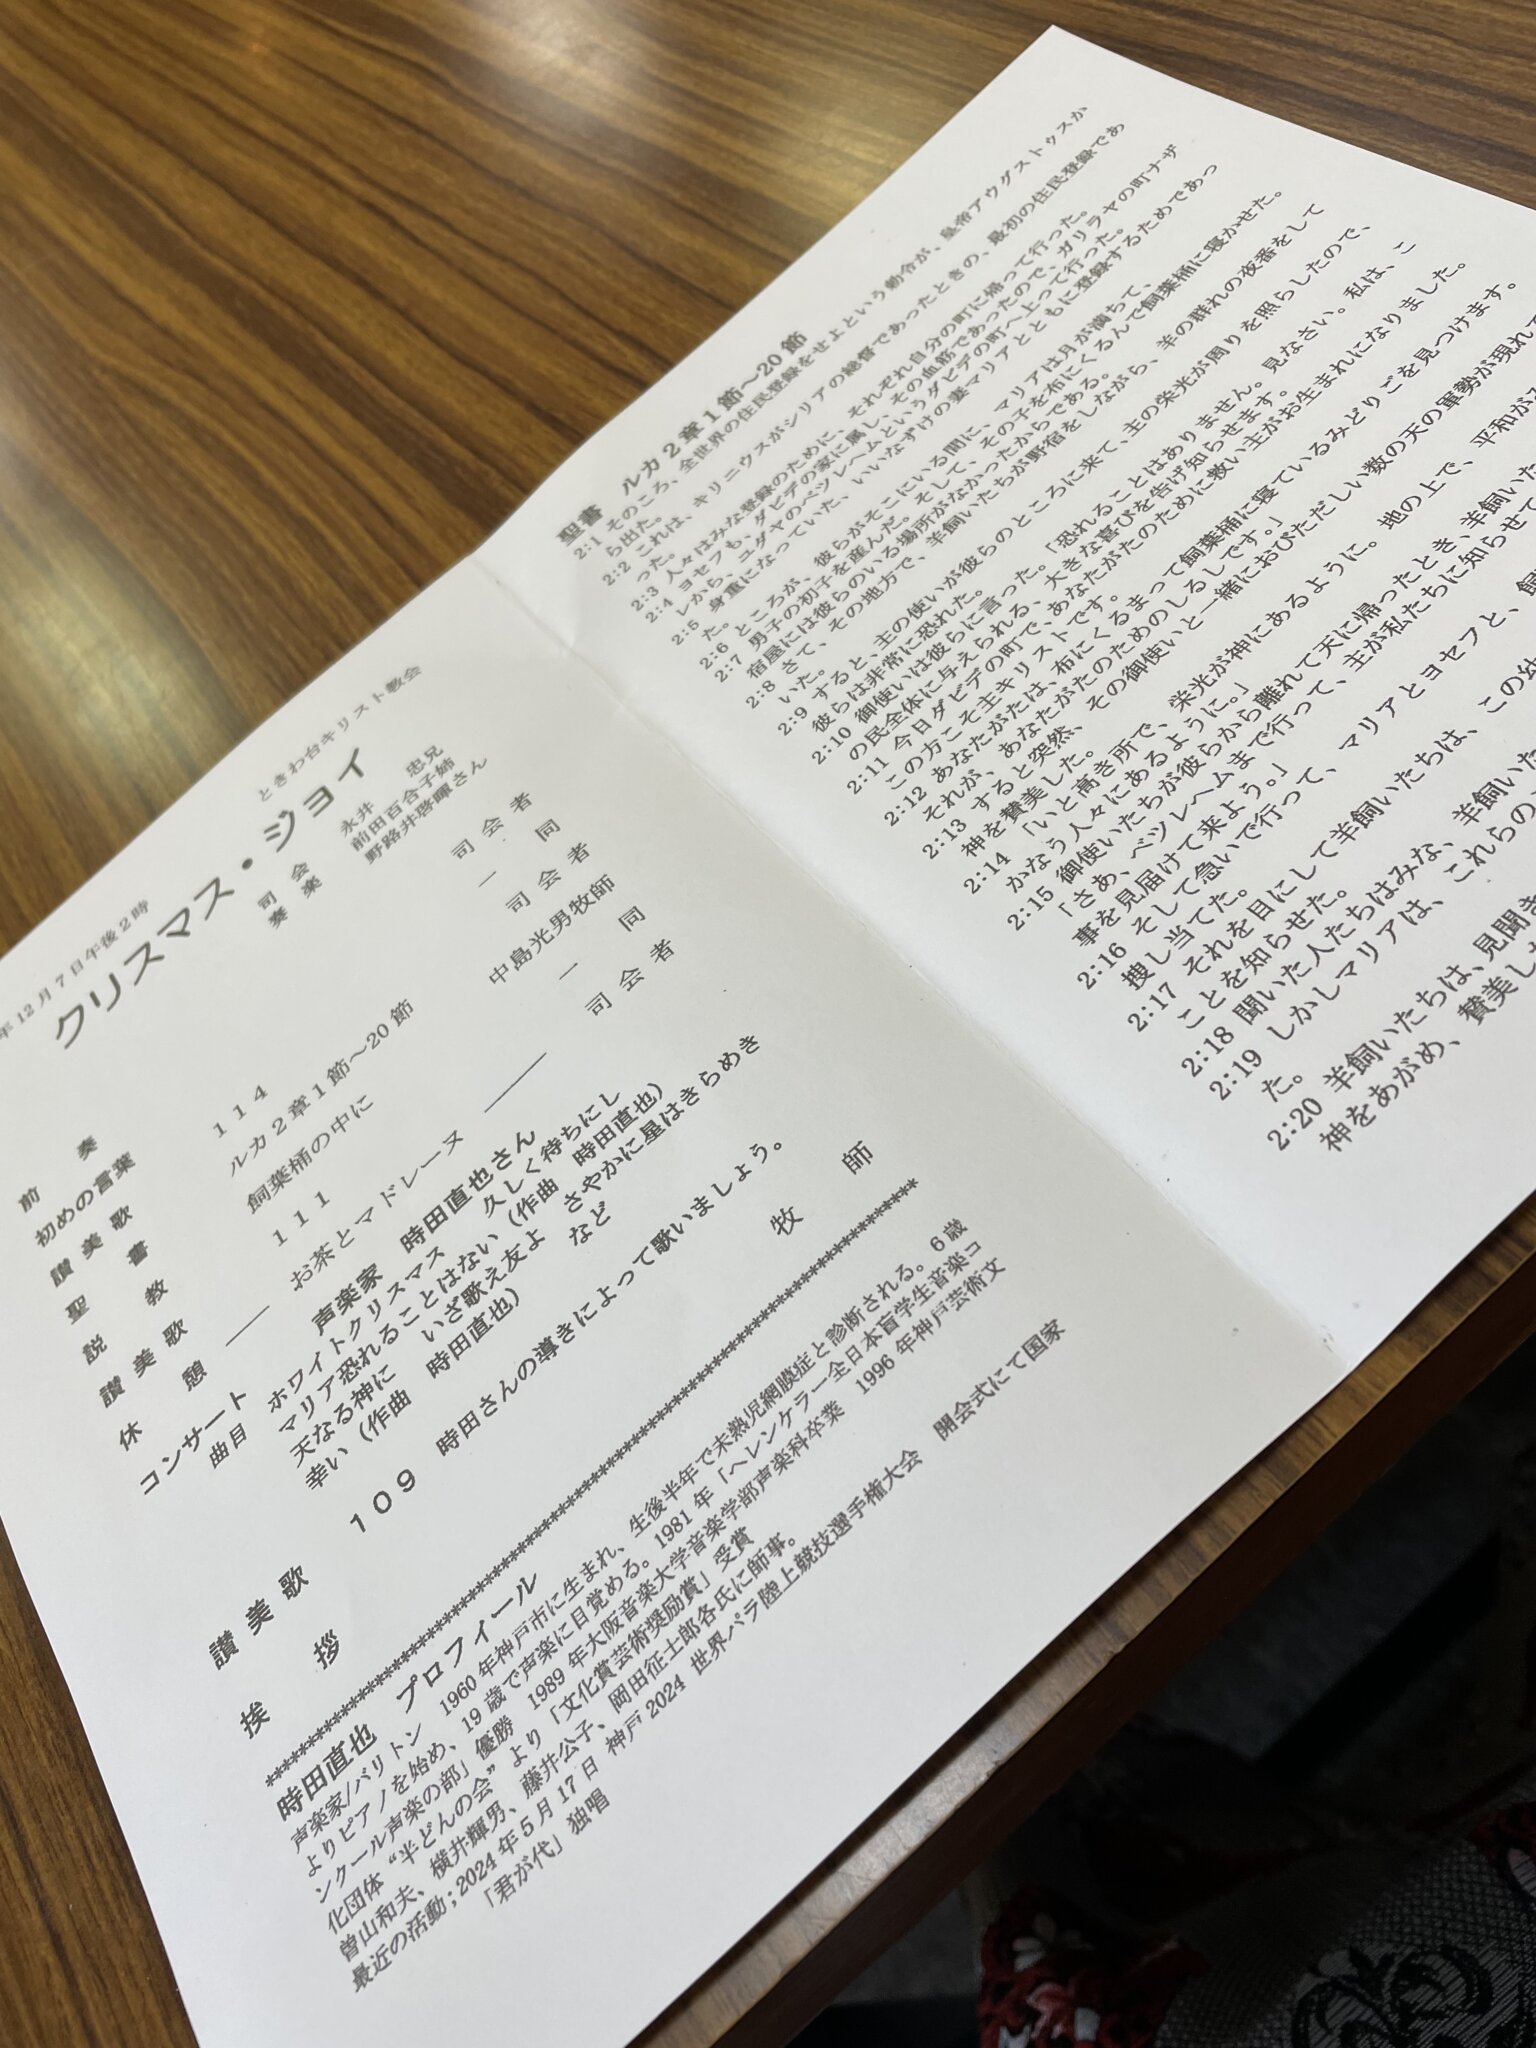 年12月7日午後2時
ときわ台キリスト教会
クリスマス・ジョイ
司会 永井 忠兄
奏楽 前田百合子姉
野路井啓暉さん
前奏
初めの言葉 司会者
讃美歌 114 一同
聖書 ルカ2章1節～20節 司会者
説教 飼葉桶の中に 中島光男牧師
讃美歌 111 一同
休憩 ―― お茶とマドレーヌ ―― 司会者
コンサート 声楽家 時田直也さん
曲目 ホワイトクリスマス 久しく待ちにし
マリア恐れることはない(作曲 時田直也)
天なる神に いざ歌え友よ さやかに星はきらめき
幸い(作曲 時田直也) など
讃美歌 109 時田さんの導きによって歌いましょう。
挨拶 牧師
時田直也 プロフィール
声楽家/バリトン 1960年神戸市に生まれ、生後半年で未熟児網膜症と診断される。6歳
よりピアノを始め、19歳で声楽に目覚める。1981年「ヘレンケラー全日本盲学生音楽コ
ンクール声楽の部」優勝 1989年大阪音楽大学音楽学部声楽科卒業 1996年神戸芸術文
化団体“半どんの会”より「文化賞芸術奨励賞」受賞
曽山和夫、横井輝男、藤井公子、岡田征士郎各氏に師事。
最近の活動;2024年5月17日 神戸2024 世界パラ陸上競技選手権大会 開会式にて国家
「君が代」独唱
聖書 ルカ2章1節～20節
2:1 そのころ、全世界の住民登録をせよという勅令が、皇帝アウグストゥスか
ら出た。
2:2 これは、キリニウスがシリアの総督であったときの、最初の住民登録であ
った。
2:3 人々はみな登録のために、それぞれ自分の町に帰って行った。
2:4 ヨセフも、ダビデの家に属し、その血筋であったので、ガリラヤの町ナザ
レから、ユダヤのベツレヘムというダビデの町へ上って行った。
2:5 身重になっていた、いいなずけの妻マリアとともに登録するためであっ
た。
2:6 ところが、彼らがそこにいる間に、マリアは月が満ちて、
2:7 男子の初子を産んだ。そして、その子を布にくるんで飼葉桶に寝かせた。
宿屋には彼らのいる場所がなかったからである。
2:8 さて、その地方で、羊飼いたちが野宿をしながら、羊の群れの夜番をして
いた。
2:9 すると、主の使いが彼らのところに来て、主の栄光が周りを照らしたので、
彼らは非常に恐れた。
2:10 御使いは彼らに言った。「恐れることはありません。見なさい。私は、こ
の民全体に与えられる、大きな喜びを告げ知らせます。
2:11 今日ダビデの町で、あなたがたのために救い主がお生まれになりました。
この方こそ主キリストです。
2:12 あなたがたは、布にくるまって飼葉桶に寝ているみどりごを見つけます。
それが、あなたがたのためのしるしです。」
2:13 すると突然、その御使いと一緒におびただしい数の天の軍勢が現れて
神を賛美した。
2:14 「いと高き所で、栄光が神にあるように。地の上で、平和がみ
かなう人々にあるように。」
2:15 御使いたちが彼らから離れて天に帰ったとき、羊飼いた
「さあ、ベツレヘムまで行って、主が私たちに知らせて
事を見届けて来よう。」
2:16 そして急いで行って、マリアとヨセフと、飼
捜し当てた。
2:17 それを目にして羊飼いたちは、この幼
ことを知らせた。
2:18 聞いた人たちはみな、羊飼いた
2:19 しかしマリアは、これらの
た。
2:20 羊飼いたちは、見聞き
神をあがめ、賛美し